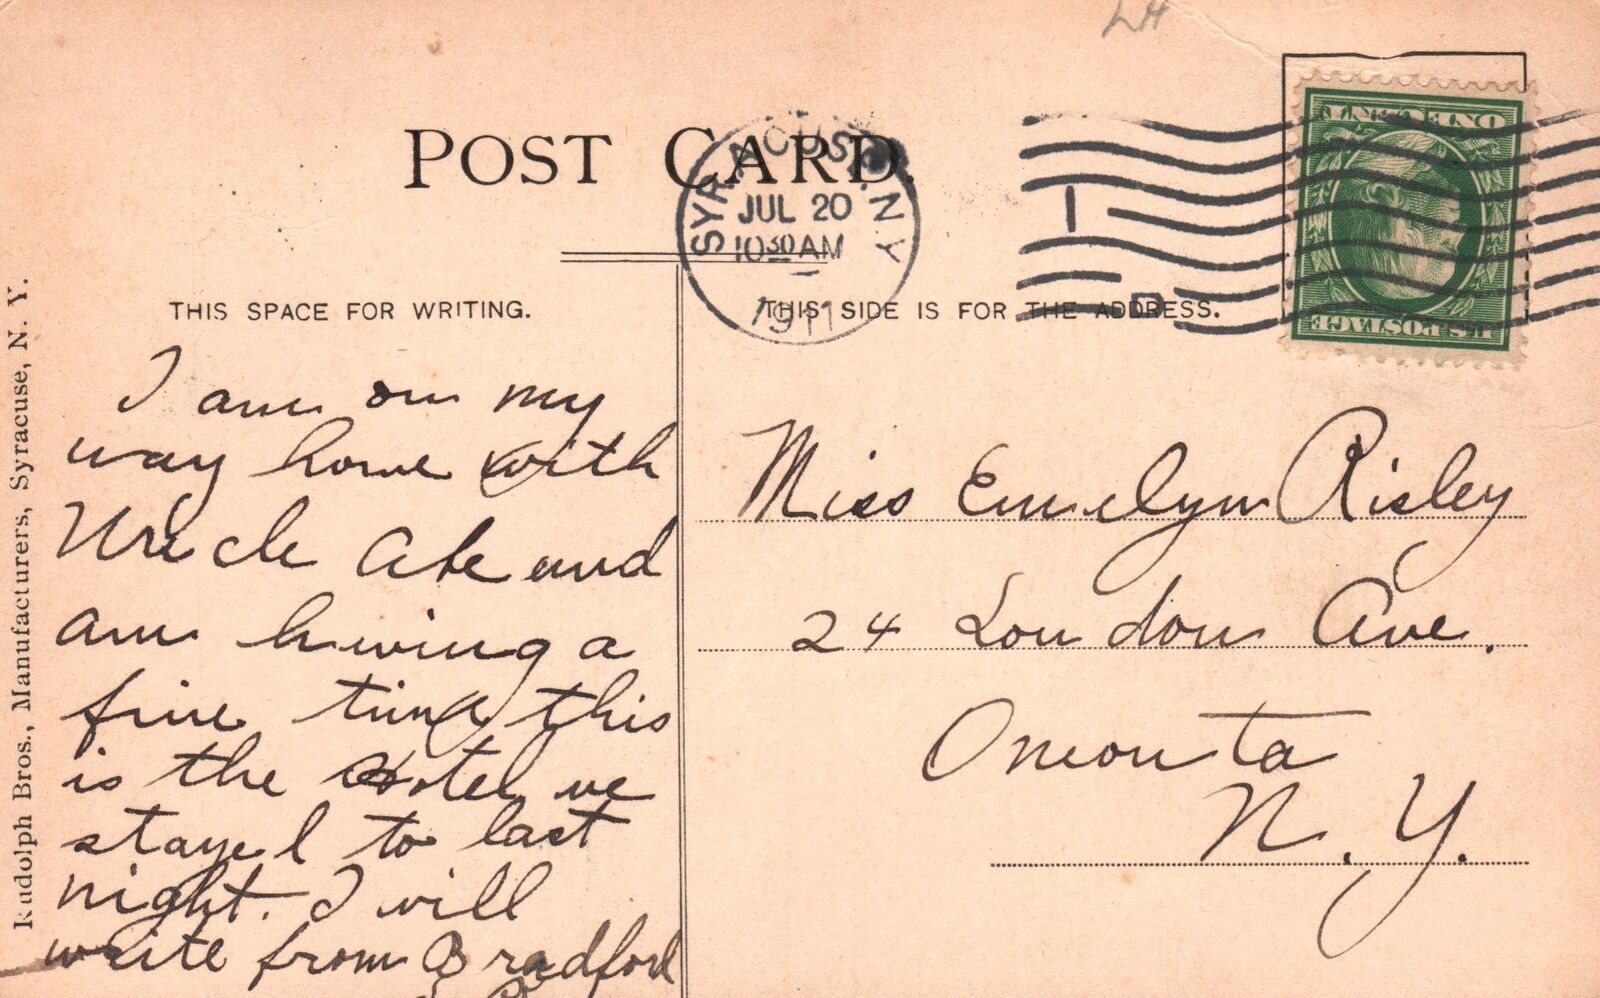 LH
POST CARD.
SYRACUSE N.Y.
JUL 20
10 30 AM
1911
1
D
ONE CENT
U.S. POSTAGE
THIS SPACE FOR WRITING.
THIS SIDE IS FOR THE ADDRESS.
Rudolph Bros., Manufacturers, Syracuse, N. Y.
I am on my
way home with
Uncle Abe and
am having a
fine time this
is the Hotel we
stayed to last
night. I will
write from Bradford
Miss Emelyn Risley
24 London Ave.
Oneonta
N. Y.